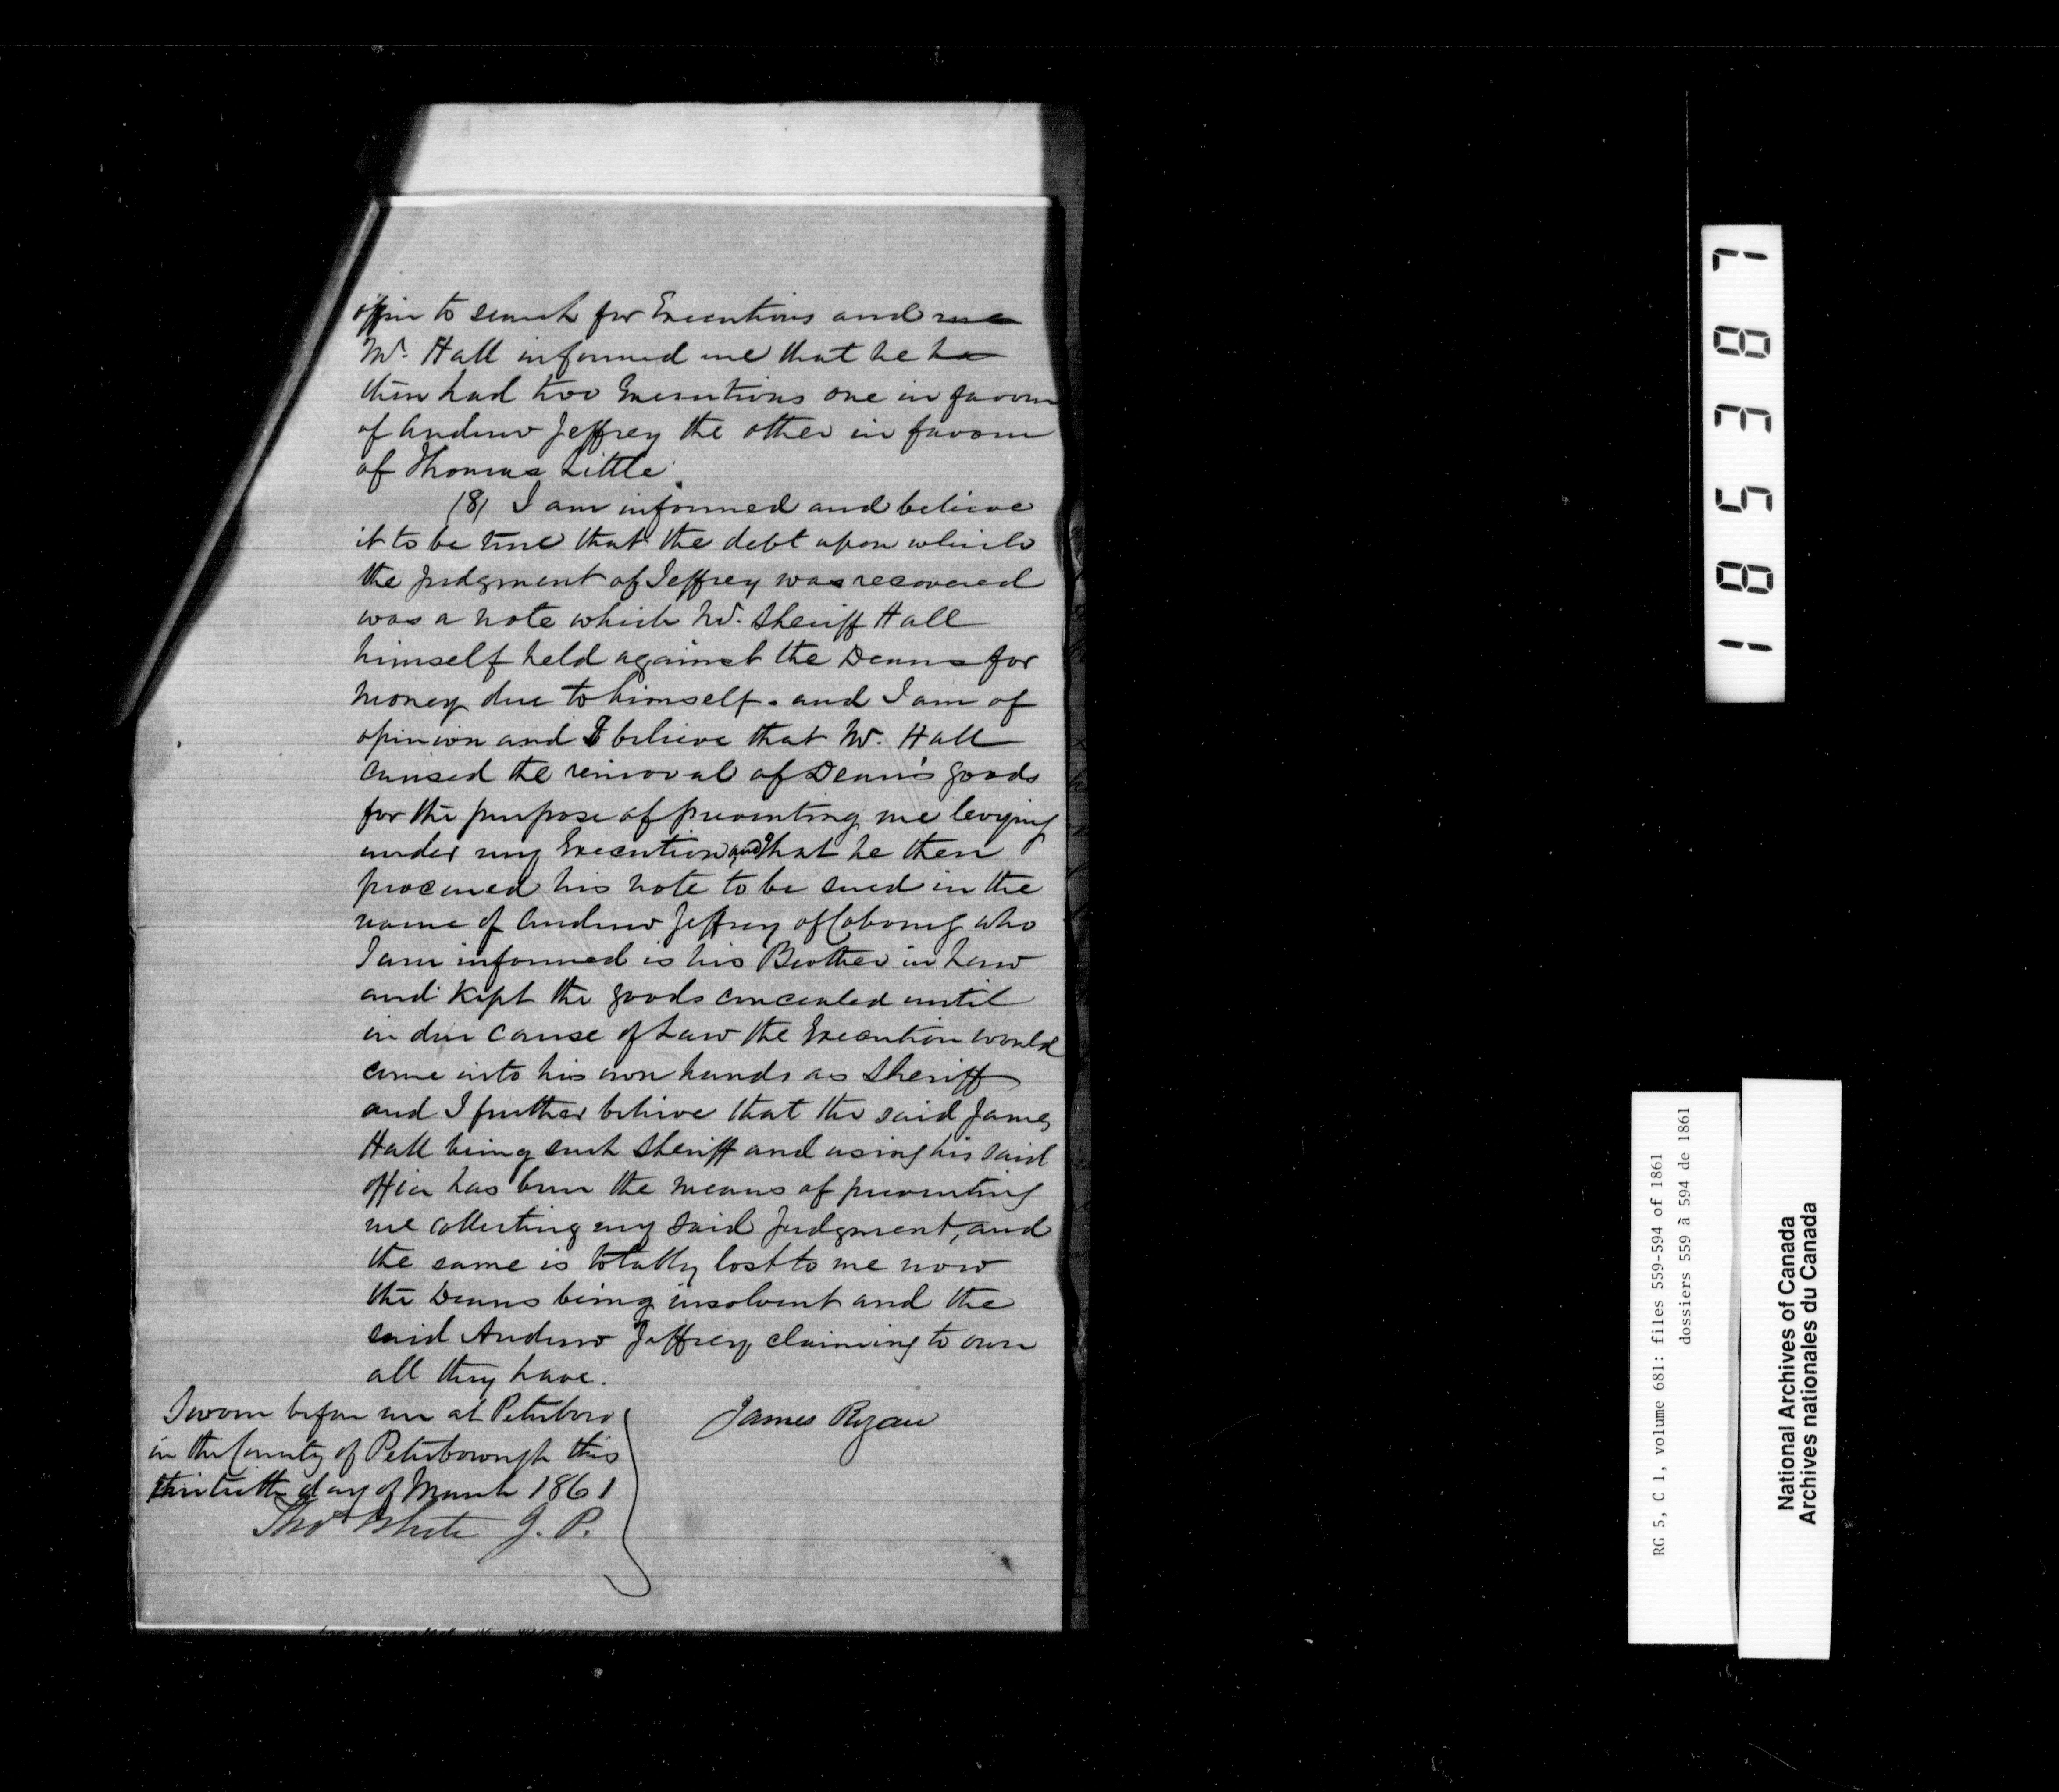 office to search for Executions and me
Mr. Hall informed me that he ha
then had two Executions one in favour
of Andrew Jeffrey the other in favour
of Thomas Little.
(8) I am informed and believe
it to be true that the debt upon which
the Judgment of Jeffrey was recovered
was a note which Mr. Sheriff Hall
himself held against the Deans for
money due to himself. and I am of
opinion and I believe that Mr. Hall
caused the removal of Dean's goods
for the purpose of preventing me levying
under my Execution and that he then
procured his note to be sued in the
name of Andrew Jeffrey of Cobourg who
I am informed is his Brother in Law
and kept the goods concealed until
in due cause of Law the Execution would
come into his own hands as Sheriff
and I further believe that the said James
Hall being such Sheriff and using his said
office has been the means of preventing
me collecting my said Judgment, and
the same is totally lost to me now
the Deans being insolvent and the
said Andrew Jeffrey claiming to own
all they have.
Sworn before me at Peterboro
in the County of Peterborough this
thirtieth day of March 1861
Thos White J. P.
James Ryan
185387
RG 5, C 1, volume 681: files 559-594 of 1861
dossiers 559 à 594 de 1861
National Archives of Canada
Archives nationales du Canada